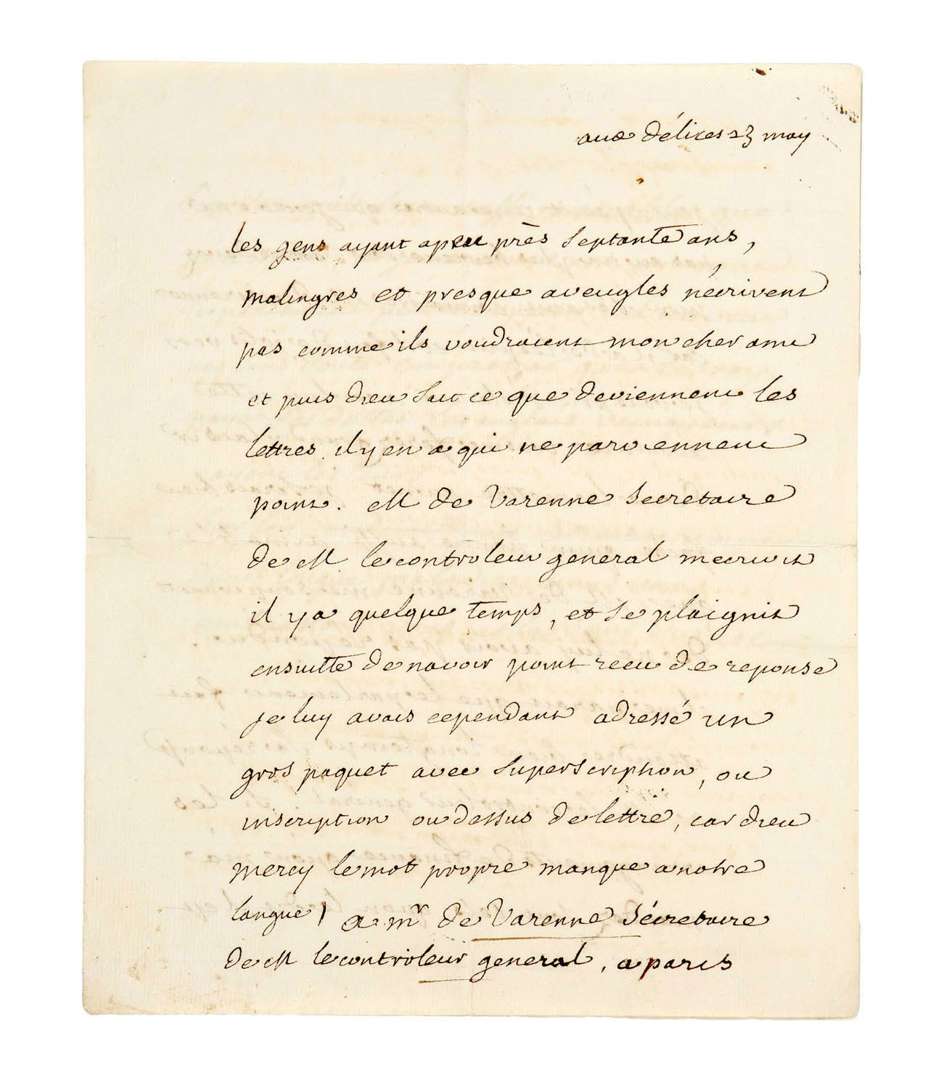 aux délices 23 may
les gens ayant apeu près septante ans,
malingres et presque aveugles n'écrivent
pas comme ils voudraient mon cher ami
et puis dieu sait ce que deviennent les
lettres. il y en a qui ne parviennent
point. M de Varenne secretaire
de M. le controleur general mecrivit
il ya quelque temps, et se plaignit
ensuitte de navoir point recu de reponse
je luy avais cependant adressé un
gros paquet avec superscription, ou
inscription ou dessus de lettre, car dieu
mercy le mot propre manque a notre
langue) a mr de Varenne sécretaire
de M le controleur general, a paris